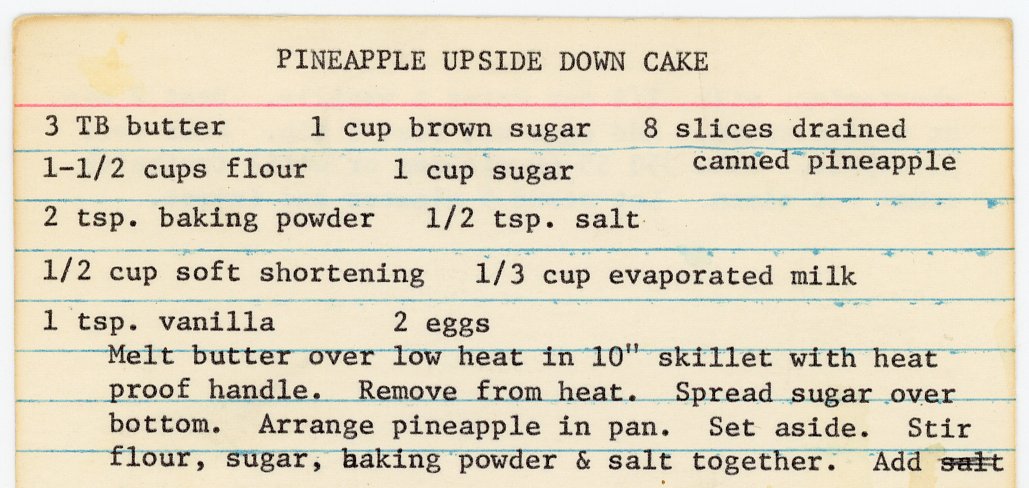 PINEAPPLE UPSIDE DOWN CAKE
3 TB butter 1 cup brown sugar 8 slices drained
canned pineapple
1-1/2 cups flour 1 cup sugar
2 tsp. baking powder 1/2 tsp. salt
1/2 cup soft shortening 1/3 cup evaporated milk
1 tsp. vanilla 2 eggs
Melt butter over low heat in 10" skillet with heat
proof handle. Remove from heat. Spread sugar over
bottom. Arrange pineapple in pan. Set aside. Stir
flour, sugar, baking powder & salt together. Add salt